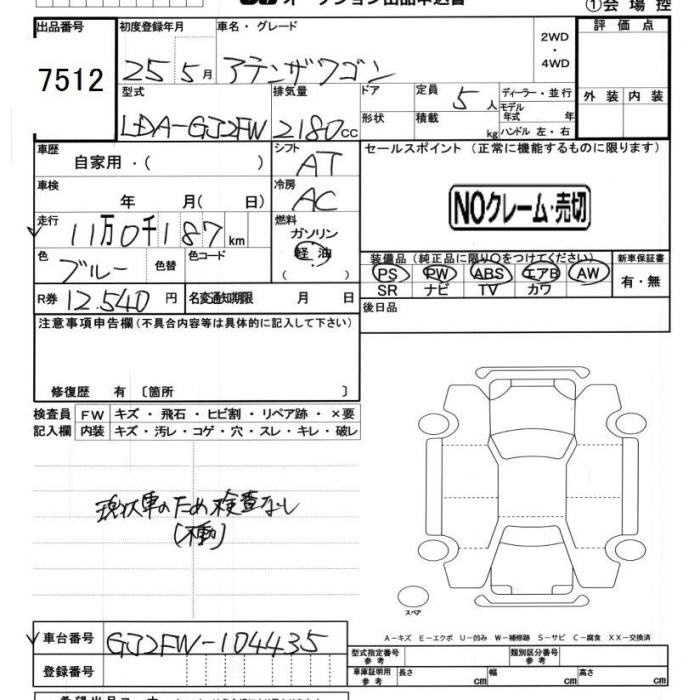 オークション出品申込書
①会場控
出品番号 初度登録年月 車名・グレード 2WD・4WD 評価点
7512 25年5月 アテンザワゴン
型式 排気量 ドア 定員 5人 ディーラー・並行 外装 内装
モデル年式 年
LDA-GJ2FW 2180cc 形状 積載 kg ハンドル 左・右
車歴 シフト セールスポイント(正常に機能するものに限ります)
自家用・( ) AT
車検 冷房
年 月(日) AC NOクレーム・売切
走行 燃料
11万0千187km ガソリン
色 色替 色コード 軽油 装備品(純正品に限り○をつけてください) 新車保証書
ブルー ( ・ ) PS PW ABS エアB AW 有・無
SR ナビ TV カワ
R券 12.540円 名変通知期限 月 日 後日品
注意事項申告欄(不具合内容等は具体的に記入して下さい)
修復歴 有〔箇所 〕
検査員 FW キズ・飛石・ヒビ割・リペア跡・×要
記入欄 内装 キズ・汚レ・コゲ・穴・スレ・キレ・破レ
現状車のため検査なし
(不動)
スペア
A-キズ E-エクボ U-凹み W-補修跡 S-サビ C-腐食 XX-交換済
車台番号 GJ2FW-104435 型式指定番号 参考 類別区分番号 参考
登録番号 車庫証明用 参考 長さ cm 幅 cm 高さ cm